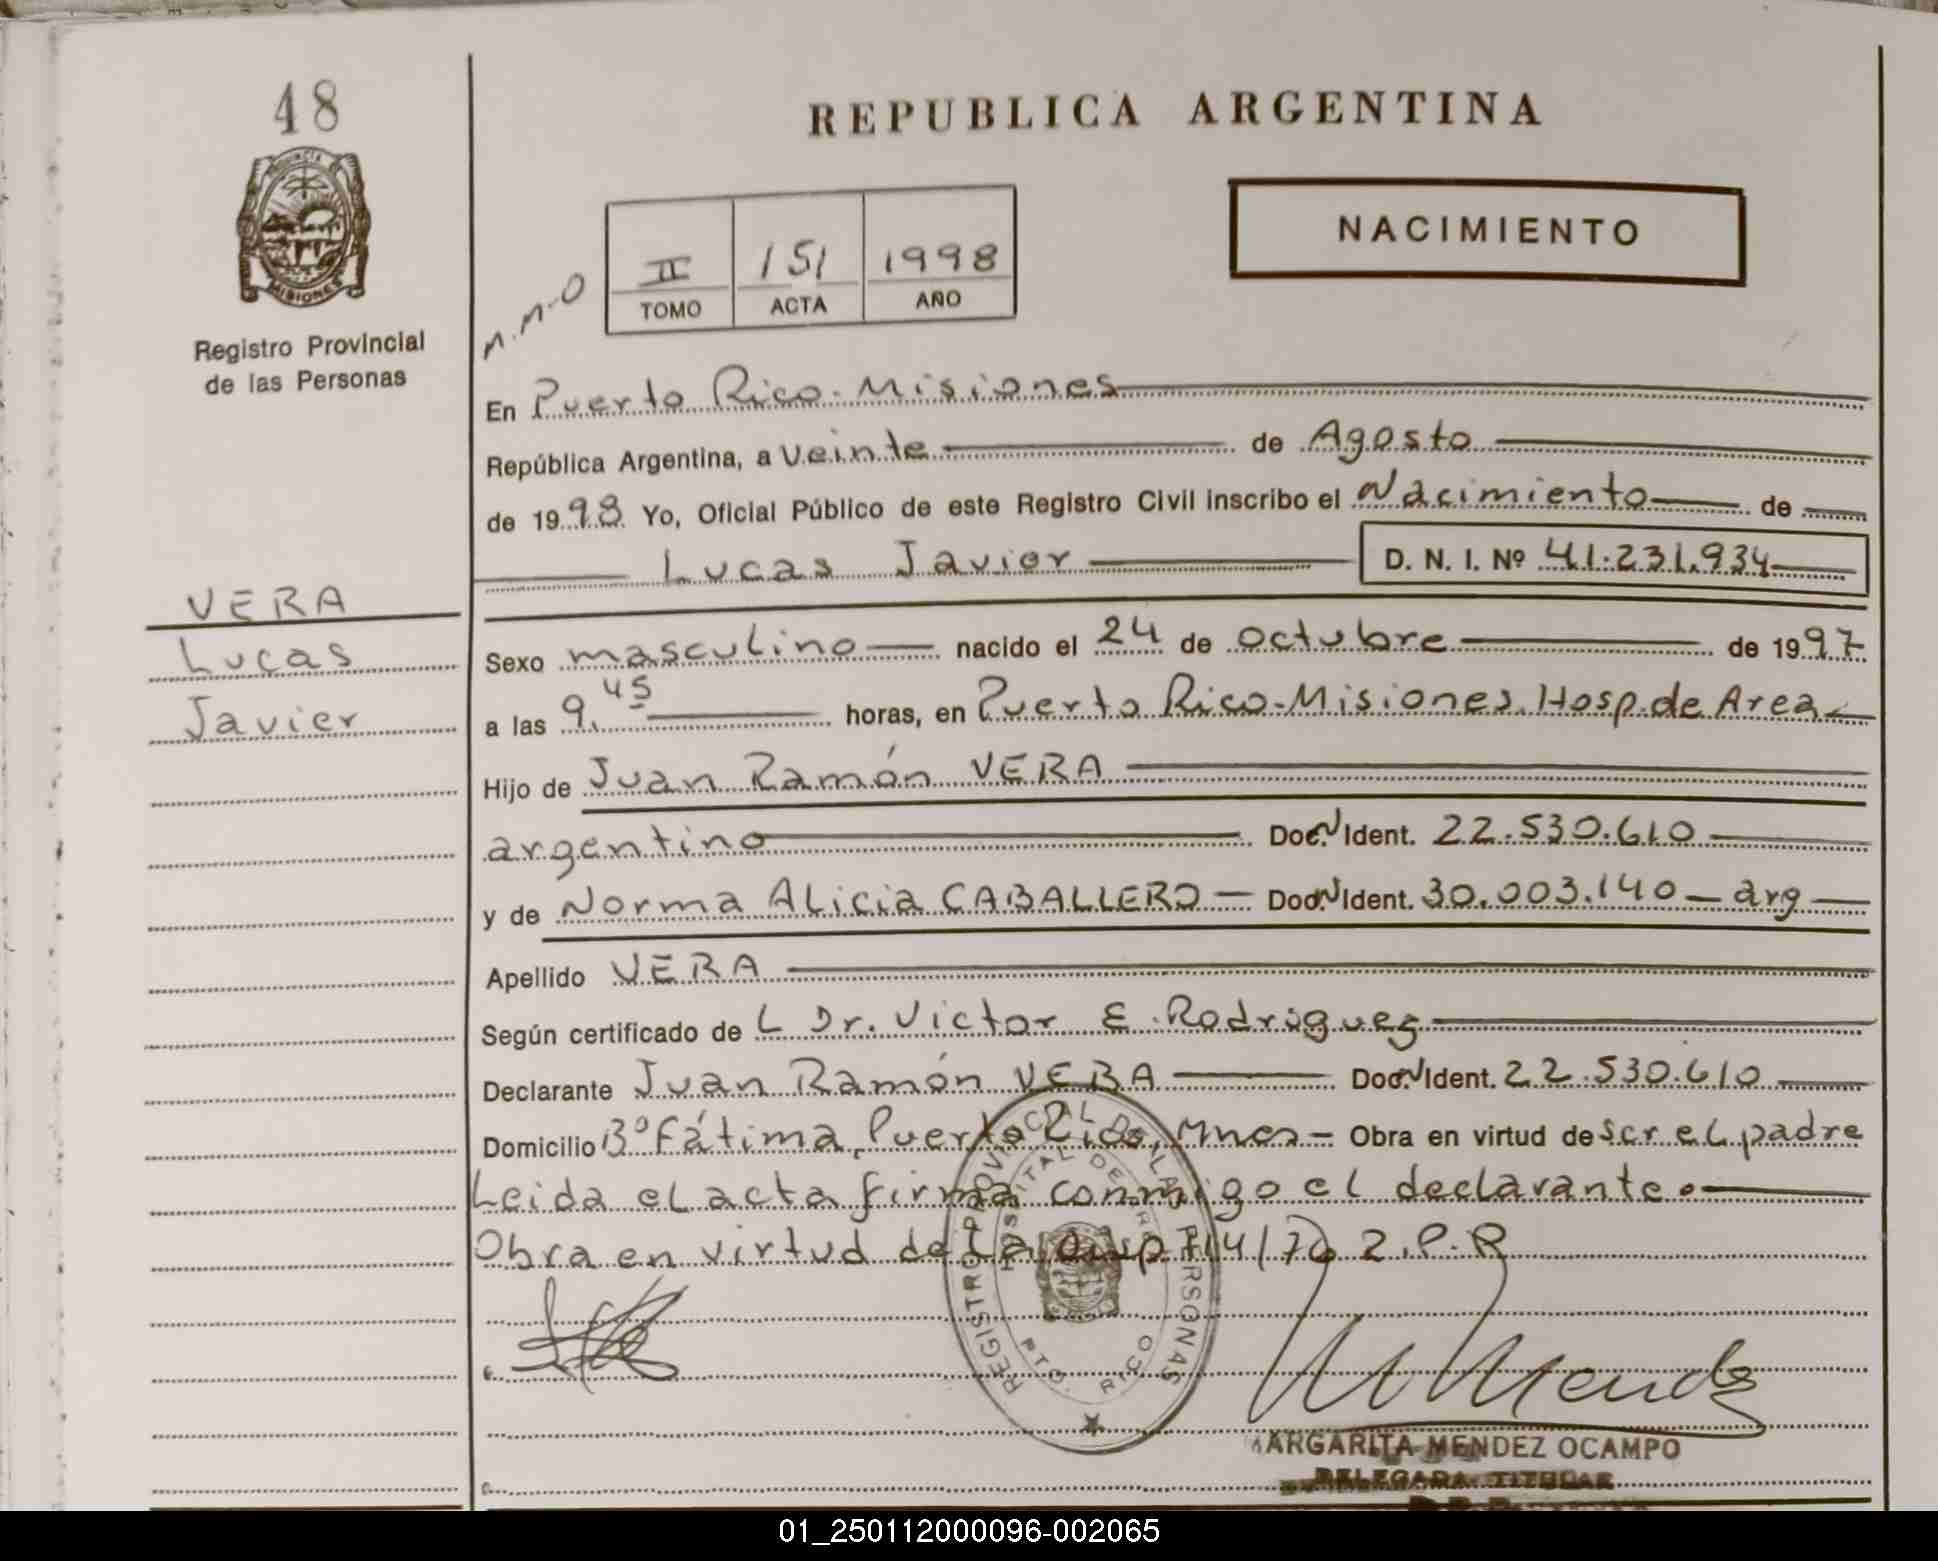 48
REPUBLICA ARGENTINA
PROVINCIA
MISIONES
Registro Provincial
de las Personas
NACIMIENTO
II 151 1998
TOMO ACTA AÑO
En Puerto Rico - Misiones
República Argentina, a veinte de Agosto
de 1998 Yo, Oficial Público de este Registro Civil inscribo el Nacimiento de
Lucas Javier D. N. I. Nº 41.231.934
VERA
Lucas
Javier
Sexo masculino nacido el 24 de octubre de 1997
a las 9.45 horas, en Puerto Rico - Misiones. Hosp. de Area
Hijo de Juan Ramón VERA
argentino Doc. N Ident. 22.530.610
y de Norma Alicia CABALLERO — Doc. N Ident. 30.003.140 — arg
Apellido VERA
Según certificado de L Dr. Victor E. Rodriguez
Declarante Juan Ramón VERA Doc. N Ident. 22.530.610
Domicilio Bº Fátima, Puerto Rico, Mnes — Obra en virtud de ser el padre
Leida el acta firma conmigo el declarante.
Obra en virtud de la 714/70 2.P.R
REGISTRO PROVINCIAL DE LAS PERSONAS
HOSPITAL DE AREA
PTO. RICO
MARGARITA MENDEZ OCAMPO
DELEGADA TITULAR
01_250112000096-002065